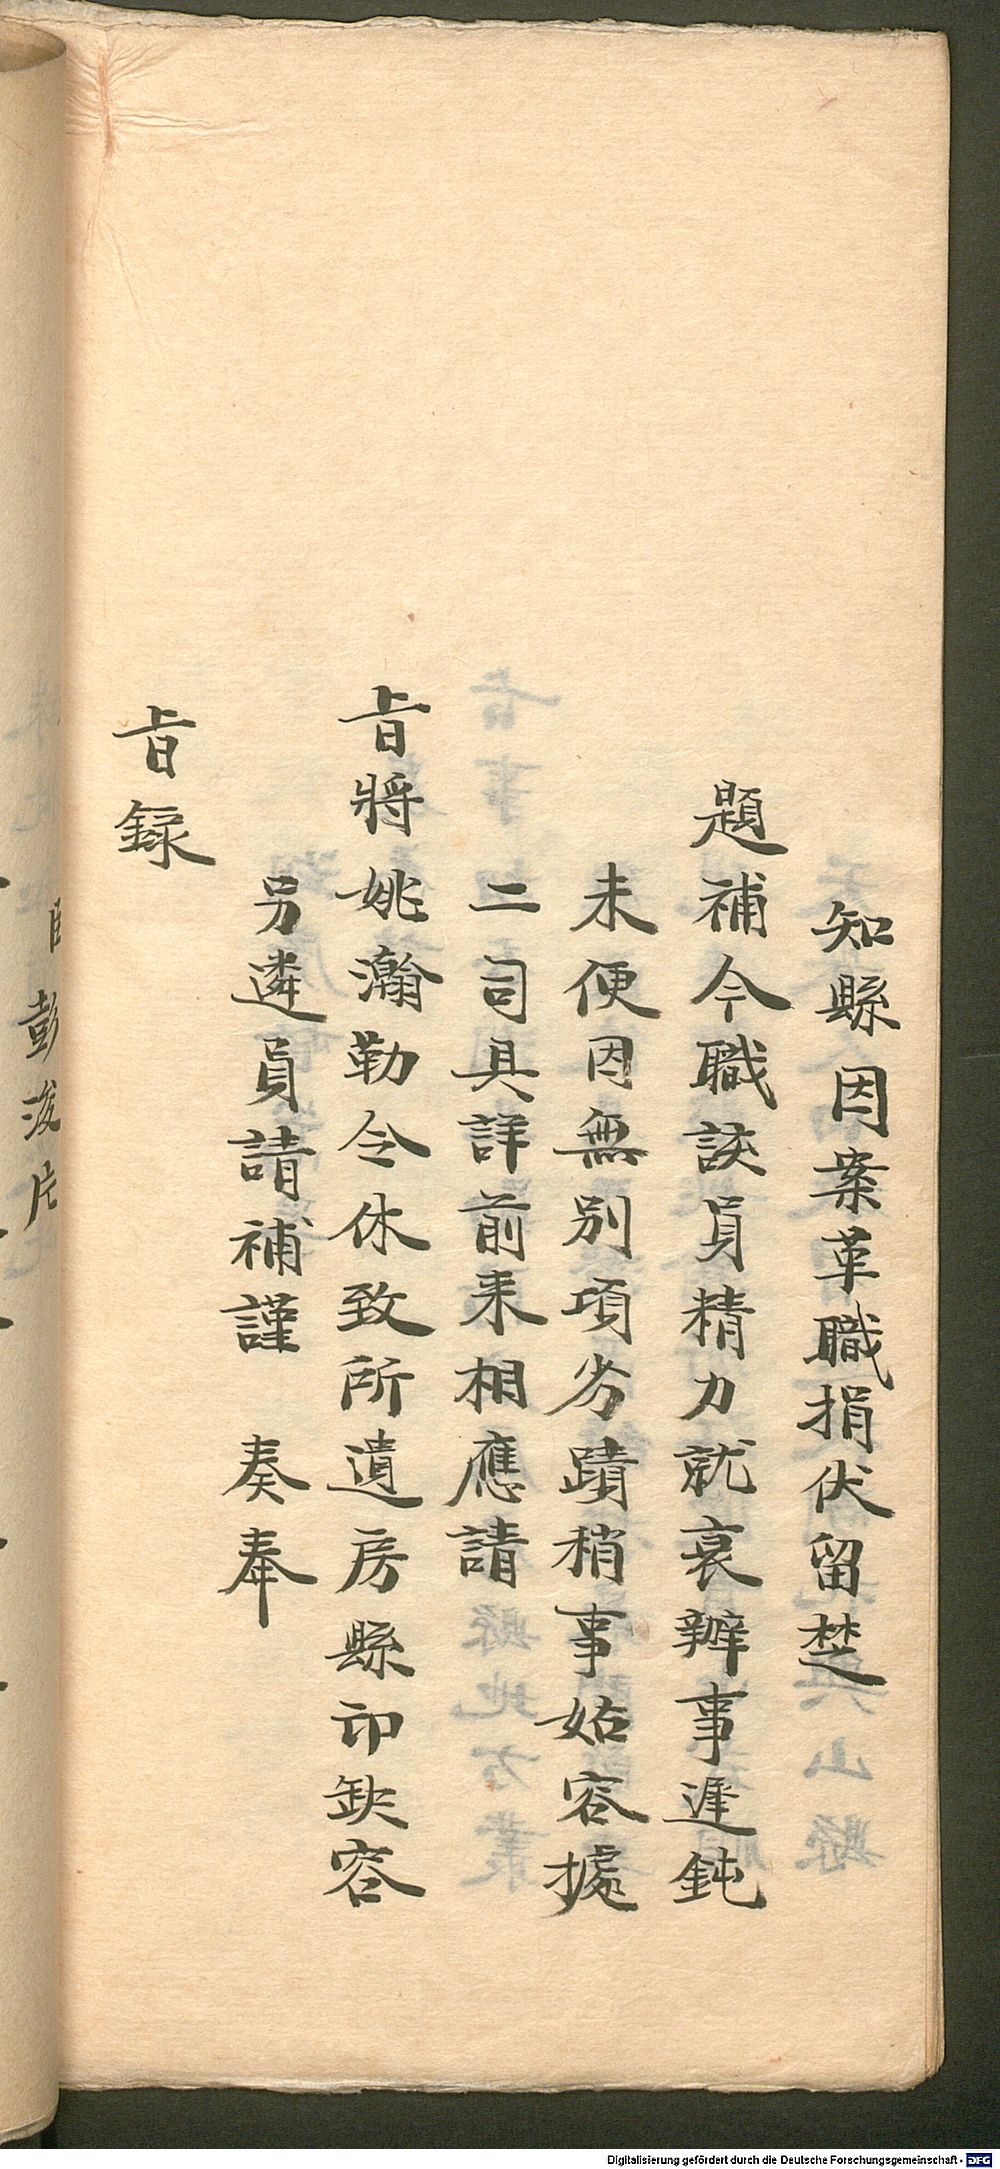 知縣因案革職捐伏留楚
題補今職該員精力就衰辦事遲鈍
未便因無別項劣蹟稍事姑容據
二司具詳前来相應請
旨將姚瀚勒令休致所遺房縣印缺容
另遴員請補謹 奏奉
旨録
彭浚片
Digitalisierung gefördert durch die Deutsche Forschungsgemeinschaft - DFG